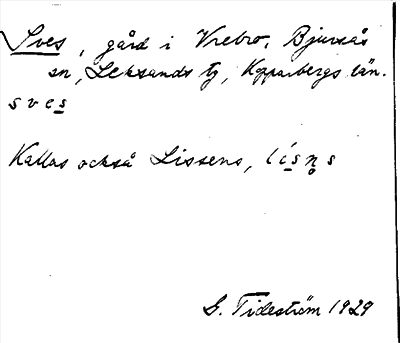 Sves, gård i Vrebro, Bjursås
sn, Leksands tg, Kopparbergs län.
sves
Kallas också Lissens, lísn̥s
G. Tideström 1929